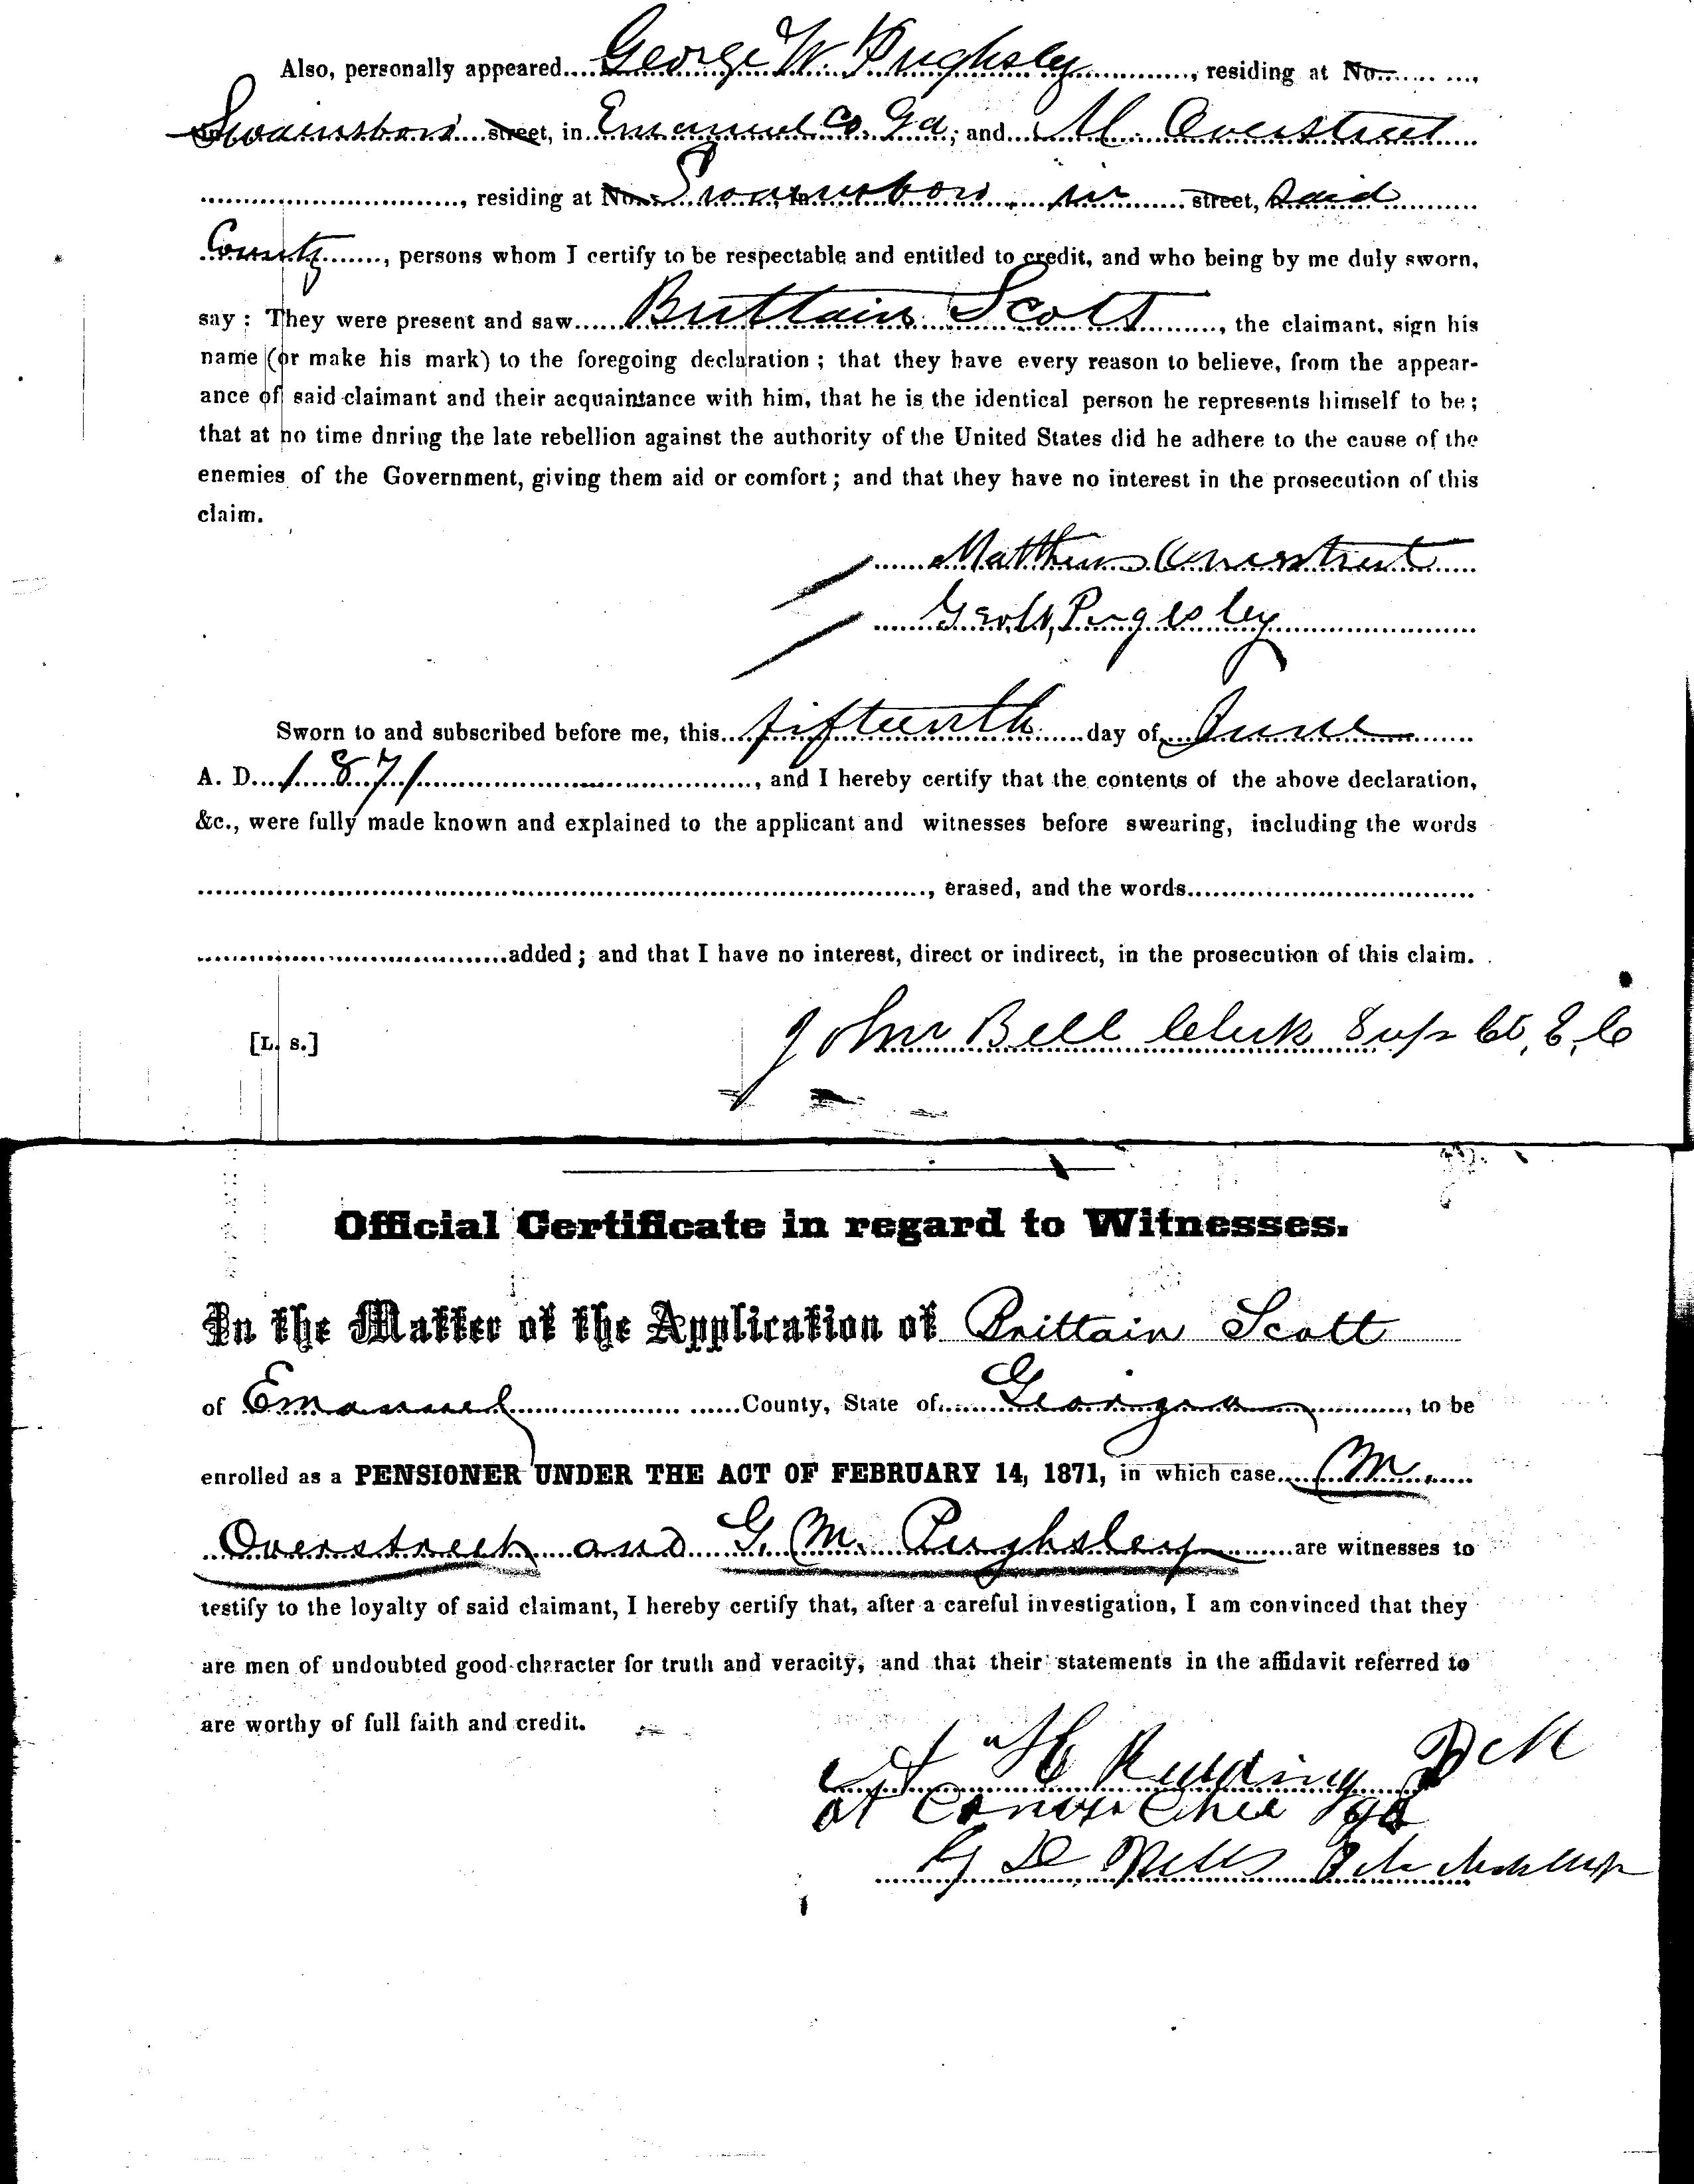 Also, personally appeared George W. Pughsley, residing at No.
Swainsboro street, in Emanuel Co. Ga, and M. Overstreet
, residing at No. Swainsboro, in street, said
County, persons whom I certify to be respectable and entitled to credit, and who being by me duly sworn,
say: They were present and saw Brittain Scott, the claimant, sign his
name (or make his mark) to the foregoing declaration; that they have every reason to believe, from the appear-
ance of said claimant and their acquaintance with him, that he is the identical person he represents himself to be;
that at no time dnring the late rebellion against the authority of the United States did he adhere to the cause of the
enemies of the Government, giving them aid or comfort; and that they have no interest in the prosecution of this
claim.
Matthew Overstreet
Geo W, Pugesley
Sworn to and subscribed before me, this fifteenth day of June
A. D. 1871, and I hereby certify that the contents of the above declaration,
&c., were fully made known and explained to the applicant and witnesses before swearing, including the words
, erased, and the words
added; and that I have no interest, direct or indirect, in the prosecution of this claim.
[L. S.] John Bell Clerk Sup Ct, E, C
Official Certificate in regard to Witnesses.
In the Matter of the Application of Brittain Scott
of Emanuel County, State of Georgia, to be
enrolled as a PENSIONER UNDER THE ACT OF FEBRUARY 14, 1871, in which case M.
Overstreet and G. M. Pughsley are witnesses to
testify to the loyalty of said claimant, I hereby certify that, after a careful investigation, I am convinced that they
are men of undoubted good character for truth and veracity, and that their statements in the affidavit referred to
are worthy of full faith and credit.
H Redding P M
at Ga